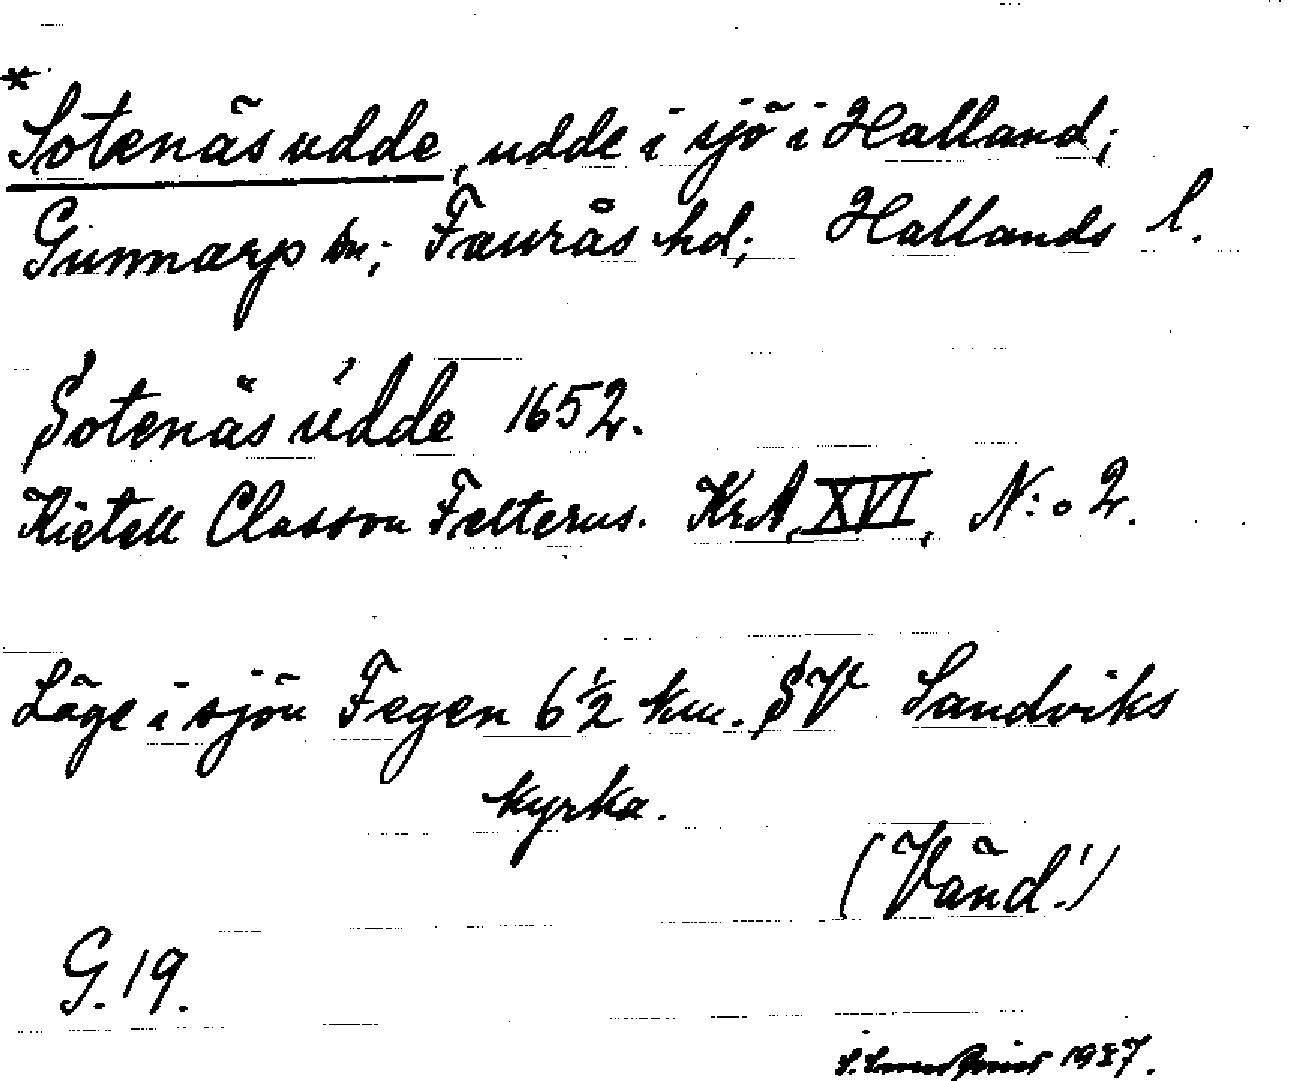 *
Sotenäs udde, udde i sjö i Halland;
Gunnarp sn; Faurås hd; Hallands l.
Sotenäs údde 1652.
Kietell Classon Felterus. KrA, XVI, N:o 2.
Läge i sjön Fegen 6½ km. SV Sandviks
kyrka.
(Vänd!)
G. 19.
1937.